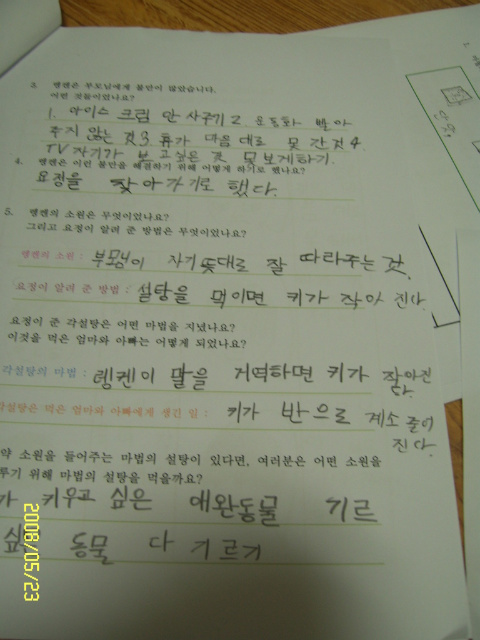 3. 렝켄은 부모님에게 불만이 많았습니다.
어떤 것들이었나요?
1. 아이스 크림 안 사주기 2 운동화 빨아
주지 않는 것 3 휴가 마음 대로 못 간 것 4
TV 자기가 보고싶은 것 못 보게하기.
4. 렝켄은 이런 불만을 해결하기 위해 어떻게 하기로 했나요?
요정을 찾아가기로 했다.
5. 렝켄의 소원은 무엇이었나요?
그리고 요정이 알려 준 방법은 무엇이었나요?
렝켄의 소원 : 부모님이 자기 뜻대로 잘 따라주는 것.
요정이 알려 준 방법 : 설탕을 먹이면 키가 작아 진다.
요정이 준 각설탕은 어떤 마법을 지녔나요?
이것을 먹은 엄마와 아빠는 어떻게 되었나요?
각설탕의 마법 : 렝켄이 말을 거역하면 키가 작아진
다.
각설탕은 먹은 엄마와 아빠에게 생긴 일 : 키가 반으로 계소 줄어
진다.
약 소원을 들어주는 마법의 설탕이 있다면, 여러분은 어떤 소원을
루기 위해 마법의 설탕을 먹을까요?
가 키우고 싶은 애완동물 기르
싶은 동물 다 기르기
2008/05/23